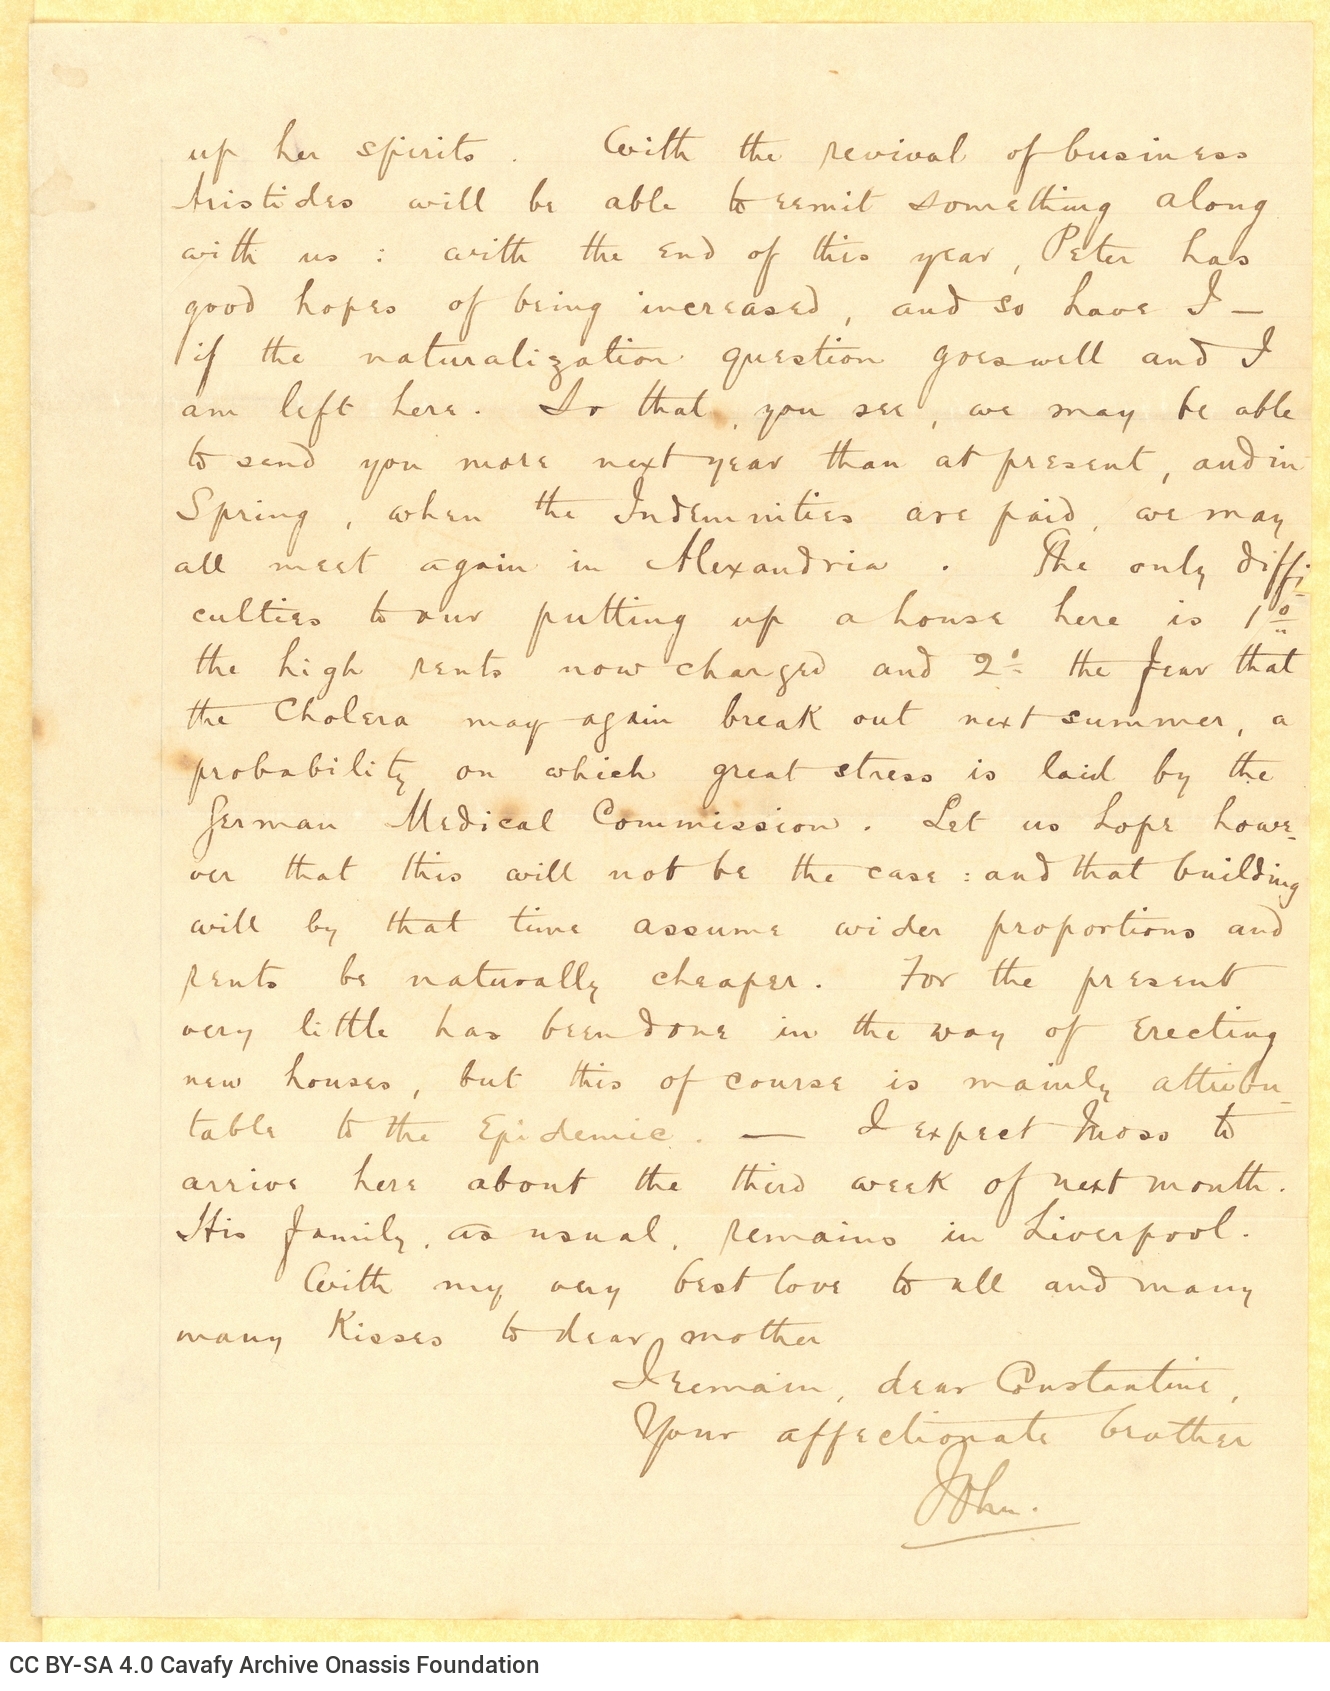 up her spirits. With the revival of business
Aristides will be able to remit something along
with us: with the end of this year, Peter has
good hopes of being increased, and so have I —
if the naturalization question goes well and I
am left here. So that, you see, we may be able
to send you more next year than at present, and in
Spring, when the Indemnities are paid, we may
all meet again in Alexandria. The only diffi-
culties to our putting up a house here is 1º
the high rents now charged and 2º the fear that
the Cholera may again break out next summer, a
probability on which great stress is laid by the
German Medical Commission. Let us hope howe-
ver that this will not be the case: and that building
will by that time assume wider proportions and
rents be naturally cheaper. For the present
very little has been done in the way of erecting
new houses, but this of course is mainly attribu-
table to the Epidemic. — I expect Moss to
arrive here about the third week of next month.
His family, as usual, remains in Liverpool.
With my very best love to all and many
many kisses to dear mother
I remain, dear Constantine,
Your affectionate brother
John.
CC BY-SA 4.0 Cavafy Archive Onassis Foundation